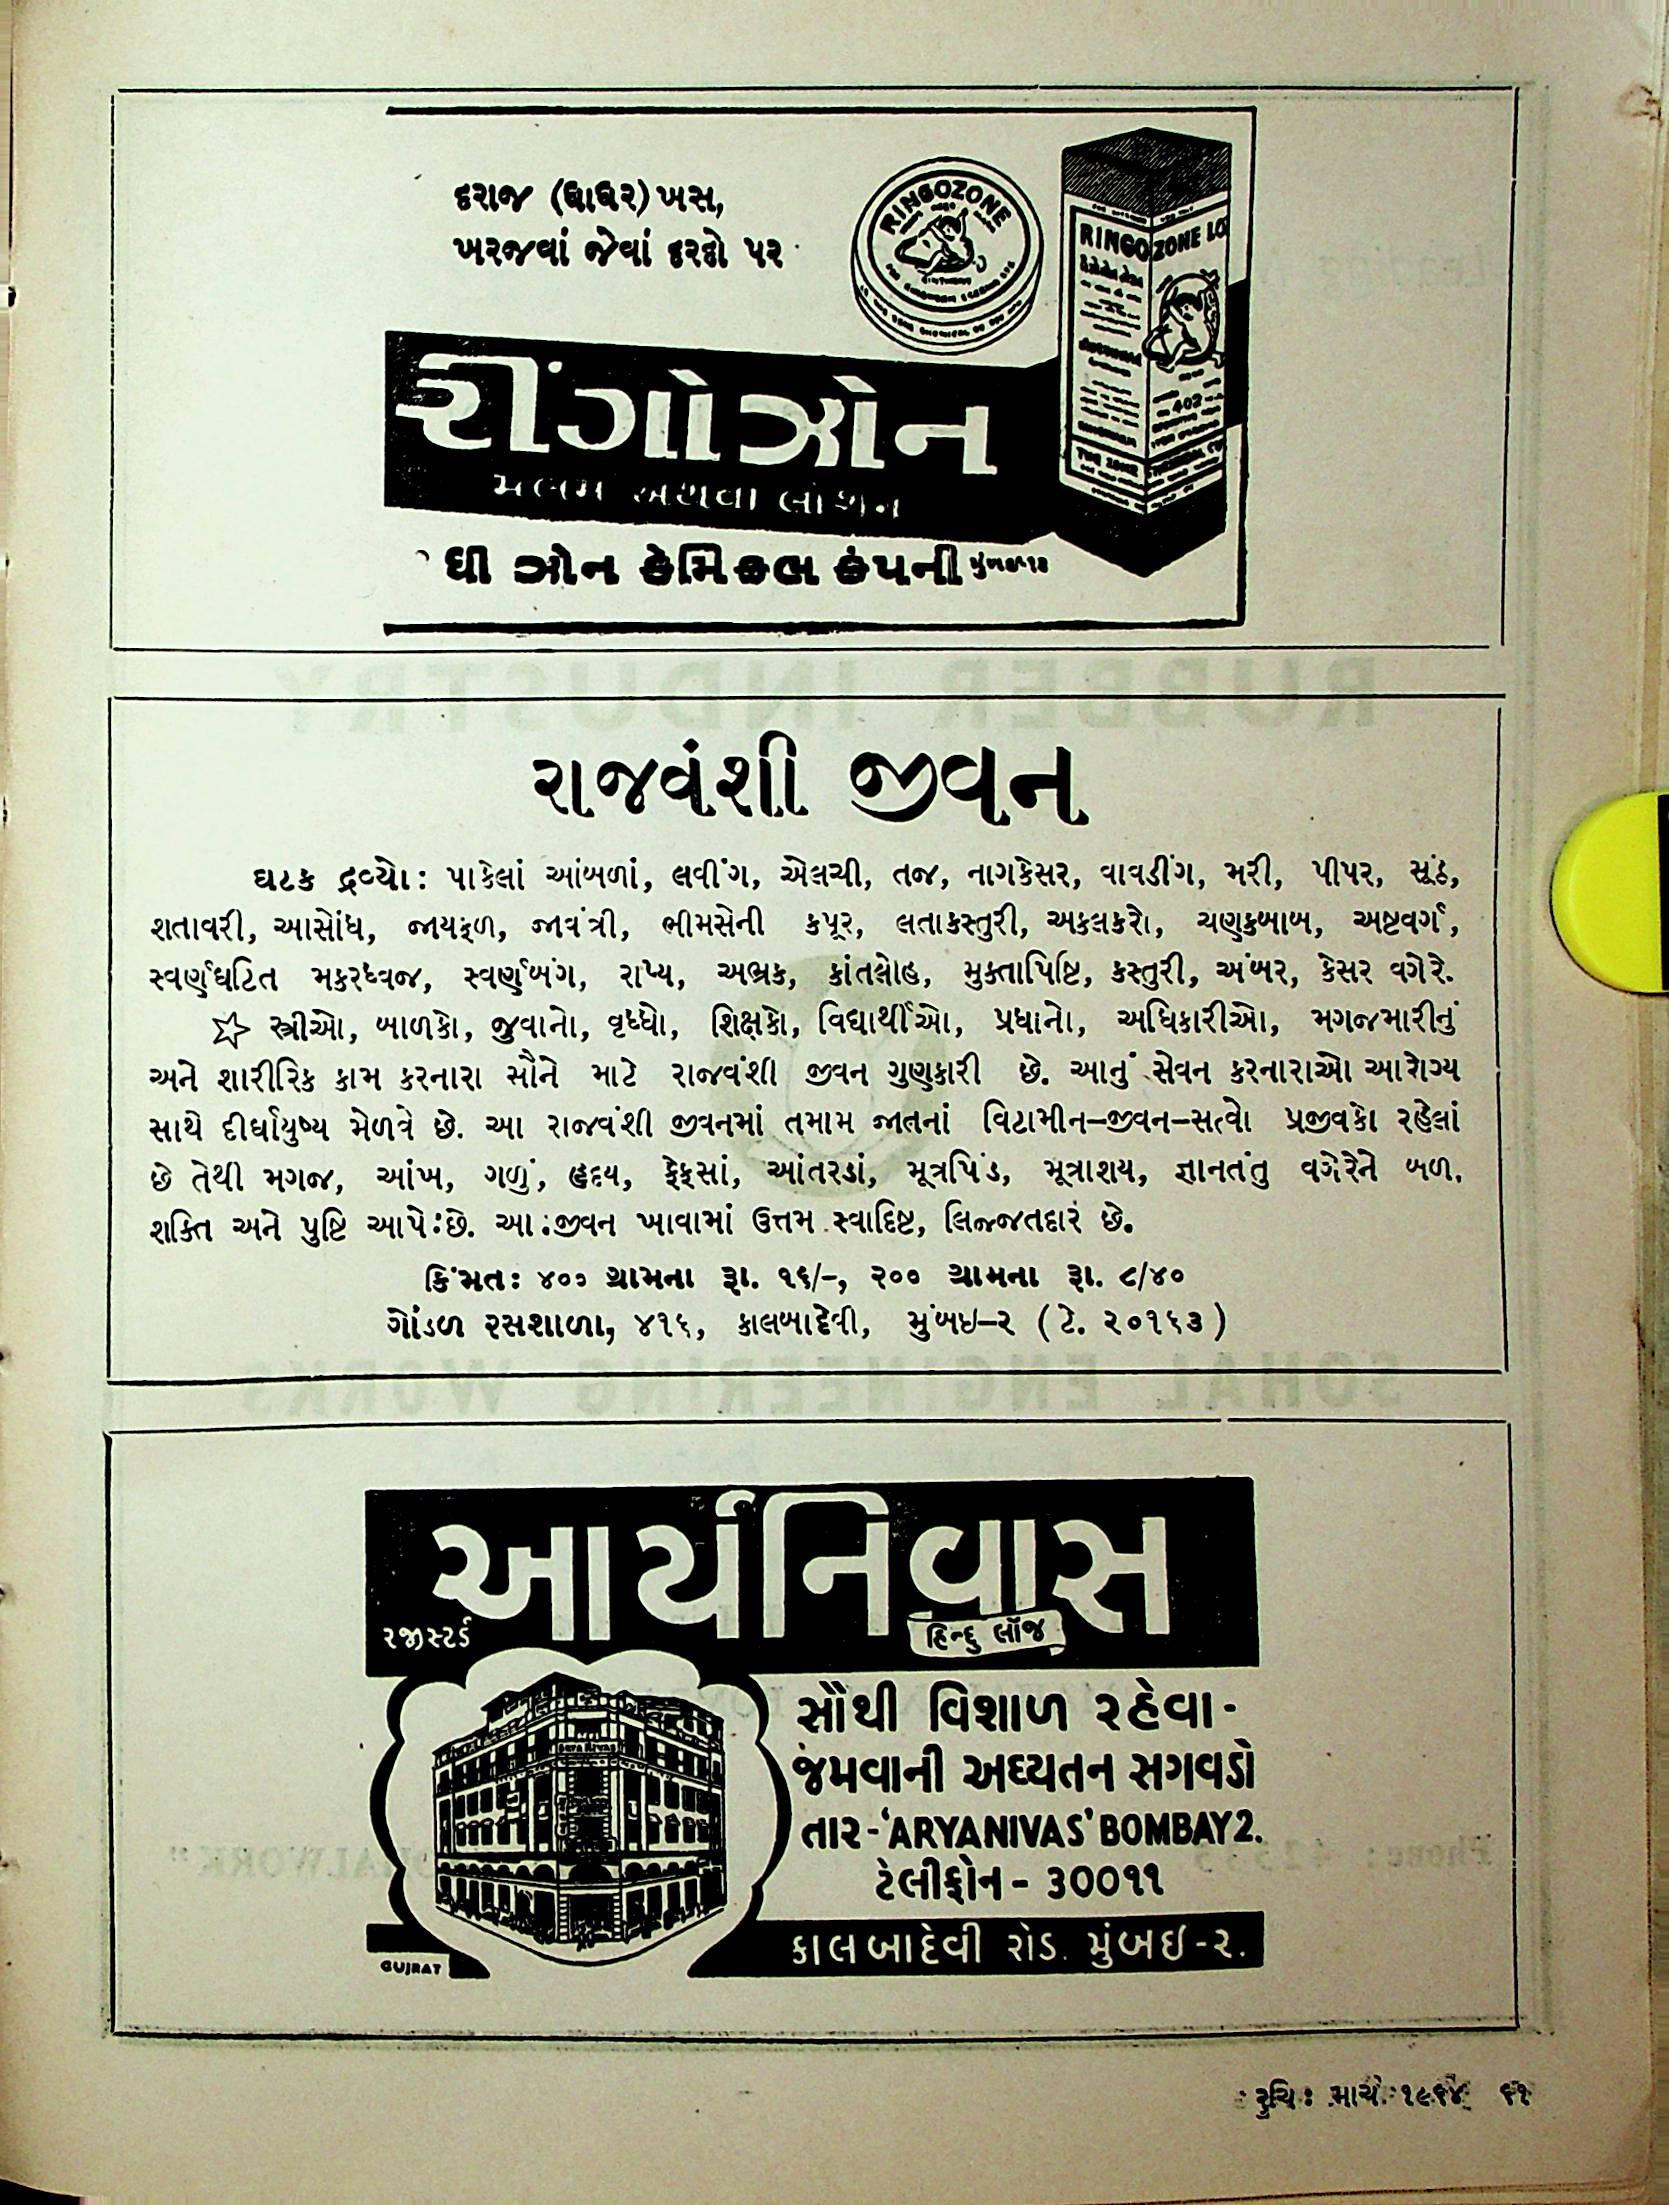 દરાજ (ધાધર) ખસ,
ખરજવાં જેવાં દરદો પર
RINGOZONE
RINGOZONE LO
રીંગોઝોન
મલમ અથવા લોશન
ધી ઝોન કેમિકલ કંપની
રાજવંશી જીવન
ઘટક દ્રવ્યો: પાકેલાં આંબળાં, લવીંગ, એલચી, તજ, નાગકેસર, વાવડીંગ, મરી, પીપર, સૂંઠ,
શતાવરી, આસોંધ, જાયફળ, જાવંત્રી, ભીમસેની કપૂર, લતાકસ્તુરી, અકલકરો, ચણકબાબ, અષ્ટવર્ગ,
સ્વર્ણઘટિત મકરધ્વજ, સ્વર્ણબંગ, રાપ્ય, અભ્રક, કાંતલોહ, મુક્તાપિષ્ટિ, કસ્તુરી, અંબર, કેસર વગેરે.
☆ સ્ત્રીઓ, બાળકો, જુવાનો, વૃધ્ધો, શિક્ષકો, વિદ્યાર્થીઓ, પ્રધાનો, અધિકારીઓ, મગજમારીનું
અને શારીરિક કામ કરનારા સૌને માટે રાજવંશી જીવન ગુણકારી છે. આનું સેવન કરનારાઓ આરોગ્ય
સાથે દીર્ઘાયુષ્ય મેળવે છે. આ રાજવંશી જીવનમાં તમામ જાતનાં વિટામીન–જીવન–સત્વો પ્રજીવકો રહેલાં
છે તેથી મગજ, આંખ, ગળું, હૃદય, ફેફસાં, આંતરડાં, મૂત્રપિંડ, મૂત્રાશય, જ્ઞાનતંતુ વગેરેને બળ,
શક્તિ અને પુષ્ટિ આપે છે. આ જીવન ખાવામાં ઉત્તમ સ્વાદિષ્ટ, લિજ્જતદાર છે.
કિંમત: ૪૦૦ ગ્રામના રૂા. ૧૬/–, ૨૦૦ ગ્રામના રૂા. ૮/૪૦
ગોંડળ રસશાળા, ૪૧૬, કાલબાદેવી, મુંબઇ–૨ (ટે. ૨૦૧૬૩)
આર્યનિવાસ
રજીસ્ટર્ડ
હિન્દુ લૉજ
સૌથી વિશાળ રહેવા-
જમવાની અદ્યતન સગવડો
તાર-'ARYANIVAS' BOMBAY 2.
ટેલીફોન - ૩૦૦૧૧
કાલબાદેવી રોડ. મુંબઇ-૨.
GUJRAT
રુચિ: માર્ચ ૧૯૬૪ ૬૧